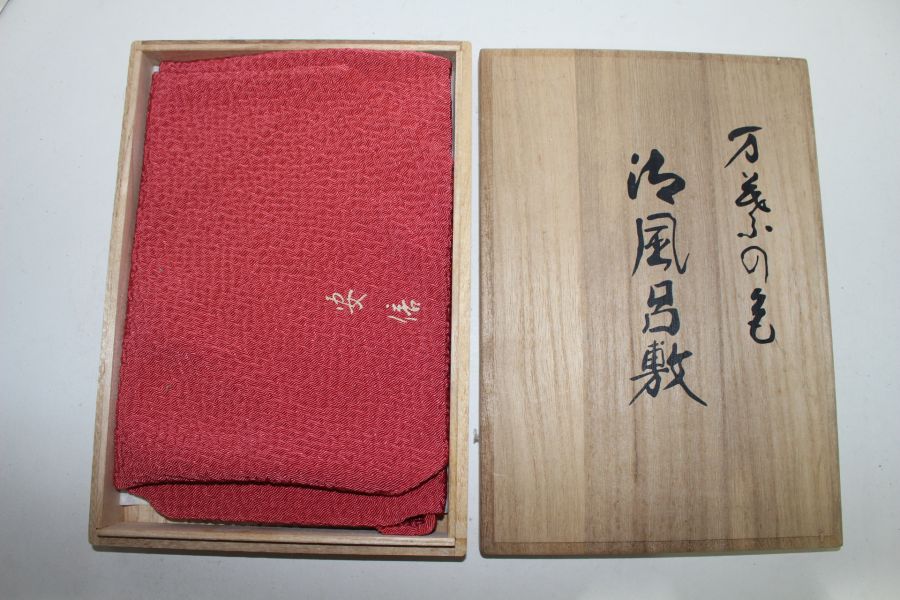 万葉の色
御風呂敷